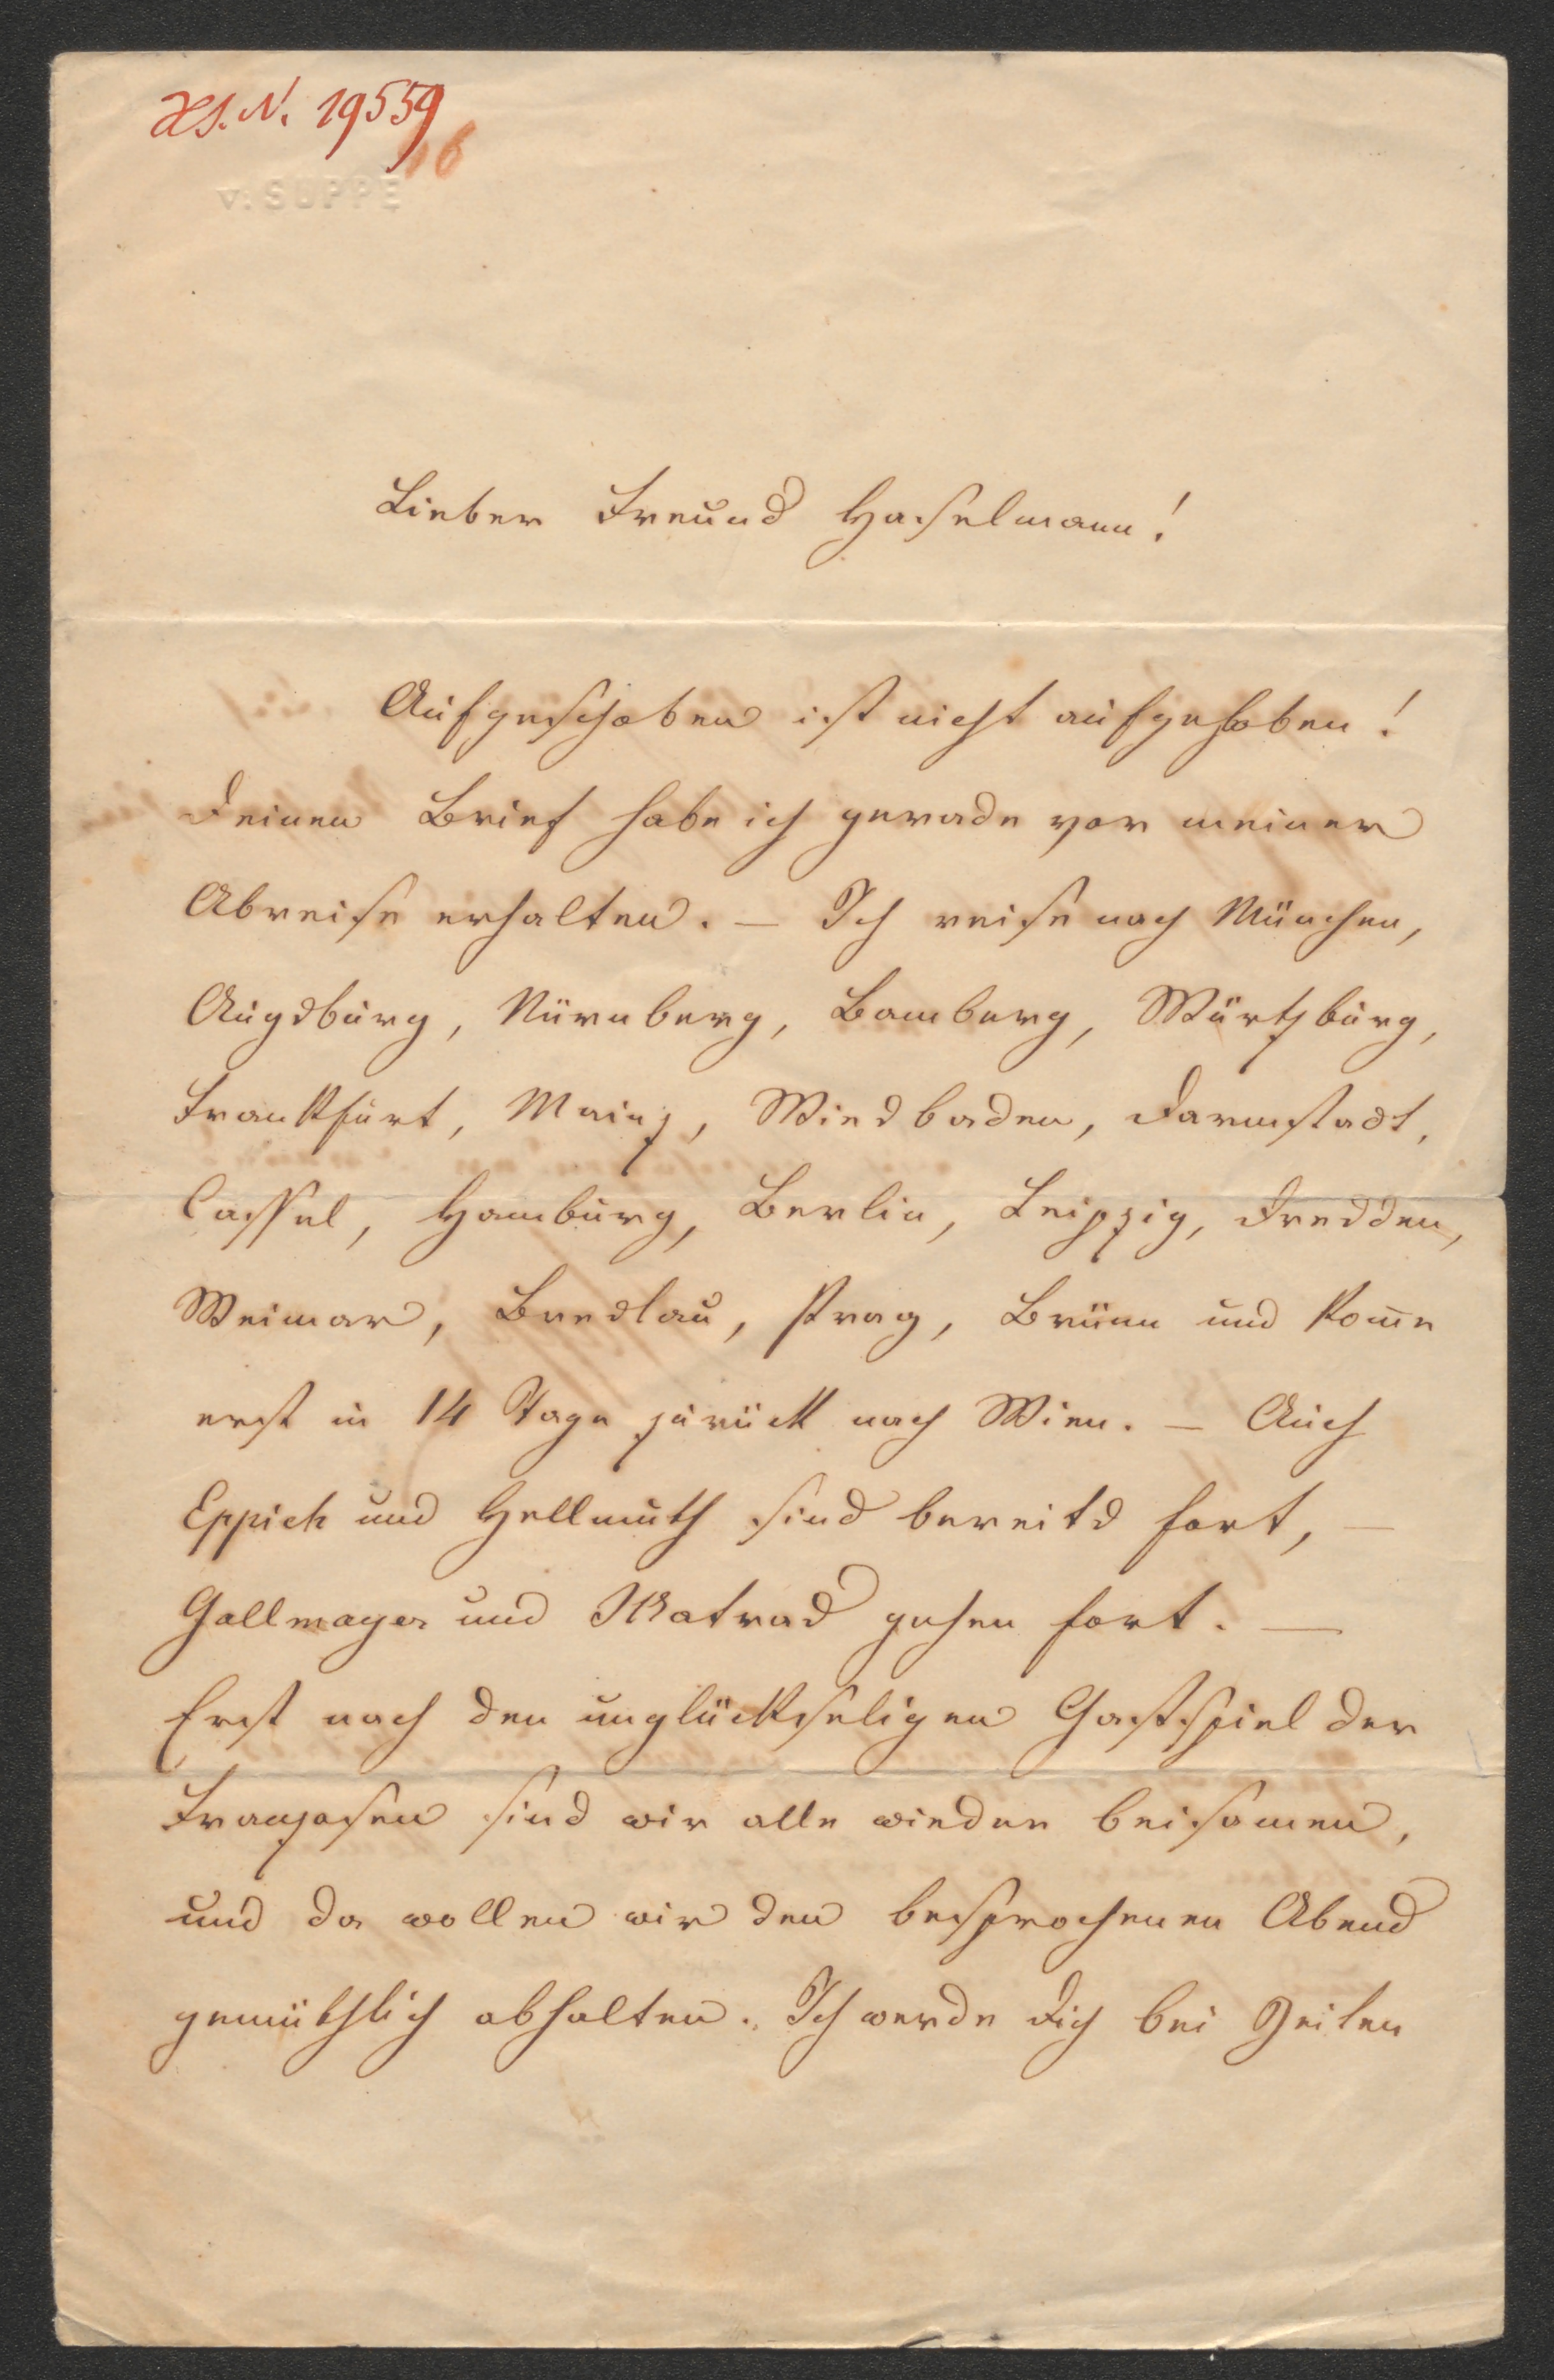 HS. N. 19559
v: SUPPE
Lieber Freund Haselmann!
Aufgeschoben ist nicht aufgehoben!
Deinen Brief habe ich gerade vor meiner
Abreise erhalten. — Ich reise nach München,
Augsburg, Nürnberg, Bamberg, Würtzburg,
Frankfurt, Mainz, Wiesbaden, Darmstadt,
Cassel, Hamburg, Berlin, Leipzig, Dresden,
Weimar, Breslau, Prag, Brünn und kom̄e
erst in 14 Tage zurück nach Wien. — Auch
Eppich und Hellmuth sind bereits fort, —
Gallmayer und Matras gehen fort. —
Erst nach den unglückseligen Gastspiel der
Franzosen sind wir alle wieder beisamen,
und da wollen wir den besprochenen Abend
gemüthlich abhalten. Ich werde Dich bei Zeiten